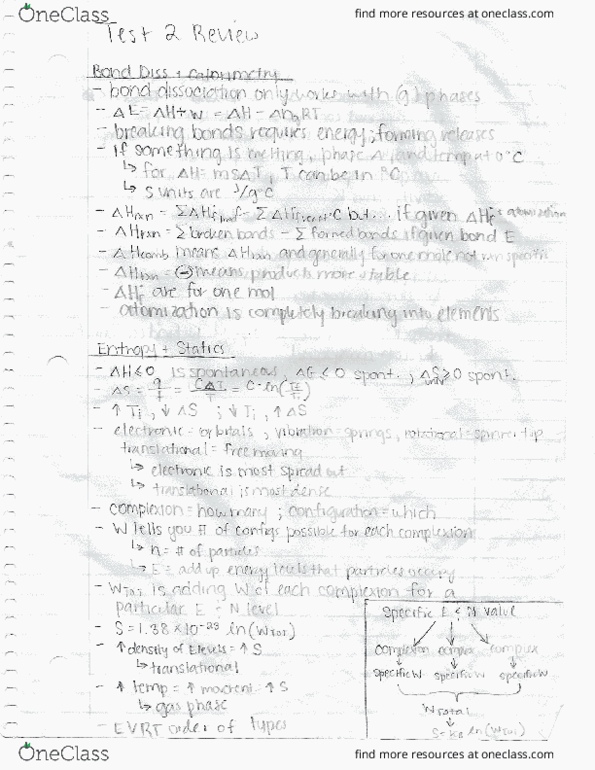 OneClass
find more resources at oneclass.com
Test 2 Review
Bond Diss + Calorimetry
- bond dissociation only works with (g) phases
- ΔE = ΔH + W = ΔH - ΔngRT
- breaking bonds requires energy; forming releases
- If something is melting, phase Δ and temp at 0°C
↳ for ΔH = msΔT, T can be in °C
↳ s units are J/g°C
- ΔHrxn = ΣΔHf prod - ΣΔHf but... if given ΔHf atomization
- ΔHrxn = Σ broken bonds - Σ formed bonds if given bond E
- ΔHcomb means ΔHrxn and generally for one mole not rxn specific
- ΔHrxn = (-) means products more stable
- ΔHf are for one mol
- atomization is completely breaking into elements
Entropy + Statics
- ΔH ≤ 0 is spontaneous, ΔG < 0 spont. ; ΔSuniv > 0 spont.
- ΔS = q/T = CΔT/T = C·ln(Tf/Ti)
- ↑ Ti, ↓ ΔS ; ↓ Ti, ↑ ΔS
- electronic = orbitals ; vibration = springs, rotational = spinner top
translational = free moving
↳ electronic is most spread out
↳ translational is most dense
- complexion = how many ; configuration = which
- W tells you # of configs possible for each complexion
↳ n = # of particles
↳ E = add up energy levels that particles occupy
- WTOT is adding W of each complexion for a
particular E + N level
- S = 1.38 x 10^-23 ln(WTOT)
- ↑ density of E levels = ↑ S
↳ translational
- ↑ temp = ↑ movement ↑ S
↳ gas phase
- EVRT order of types
Specific E & N value
complexion complex complex
specific W specific W specific W
Wtotal
S = kB ln(WTOT)
OneClass
find more resources at oneclass.com